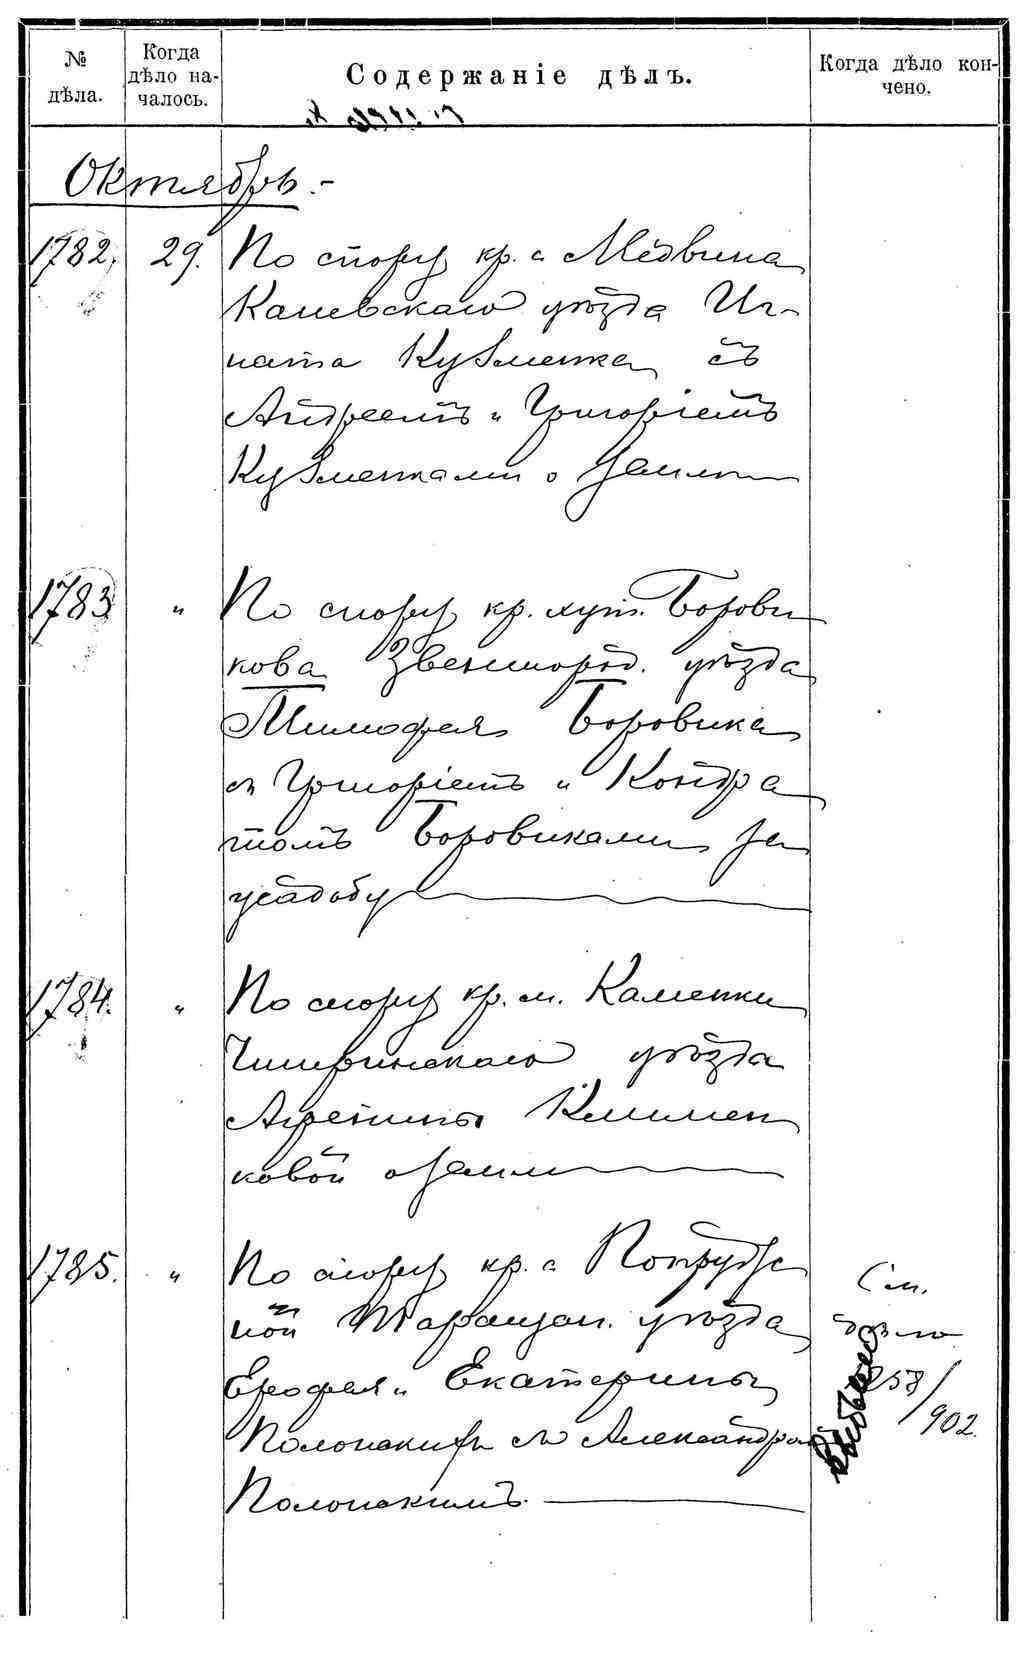 № дѣла.
Когда дѣло на-
чалось.
Содержаніе дѣлъ.
Когда дѣло кон-
чено.
Октябрь.-
1782. 29. По спору кр. с Медвина
Каневскаго уѣзда Иг-
ната Кузменка съ
Андреемъ и Григоріемъ
Кузменками о земли
1783 " По спору кр. хут. Борови
кова Звенигород. уѣзда
Тимофея Боровика
съ Григоріемъ и Кондра
томъ Боровиками за
усадьбу
1784. " По спору кр. м. Каменки
Чигиринскаго уѣзда
Агрепины Клименковой
ковой о земли
1785. " По спору кр. с
ной Таращан. уѣзда
Ерофея и Екатерины
Полонскихъ съ Александромъ
Полонскимъ.
См.
дѣло
258/902.